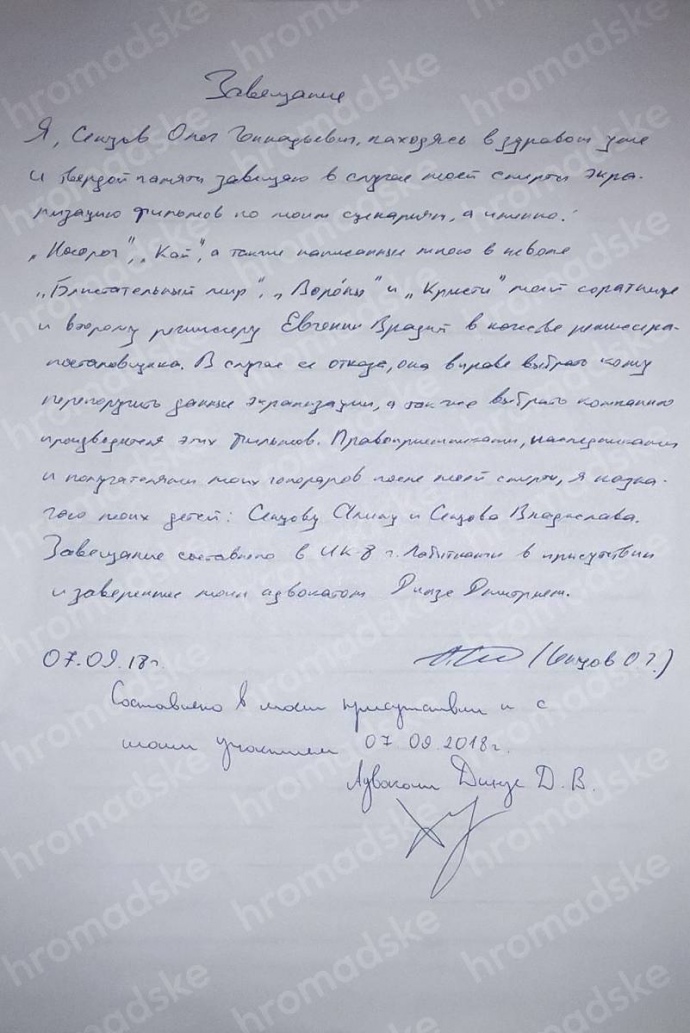 Завещание
Я, Сенцов Олег Геннадьевич, находясь в здравом уме
и твердой памяти завещаю в случае моей смерти экра-
низацию фильмов по моим сценариям, а именно:
„Носорог", „Кай", а также написанные мною в неволе
„Блистательный мир", „Воро́ны" и „Кристи" моей соратнице
и второму режиссеру Евгении Врадий в качестве режиссера-
постановщика. В случае ее отказа, она вправе выбрать кому
перепоручить данные экранизации, а также выбрать компанию
производителя этих фильмов. Правоприемниками, наследниками
и получателями моих гонораров после моей смерти, я назна-
чаю моих детей: Сенцову Алину и Сенцова Владислава.
Завещание составлено в ИК-8 г. Лабытнанги в присутствии
и заверение моим адвокатом Динзе Дмитрием.
07.09.18г. (Сенцов О.Г.)
Составлено в моем присутствии и с
моим участием 07.09.2018г.
Адвокат Динзе Д.В.
hromadske